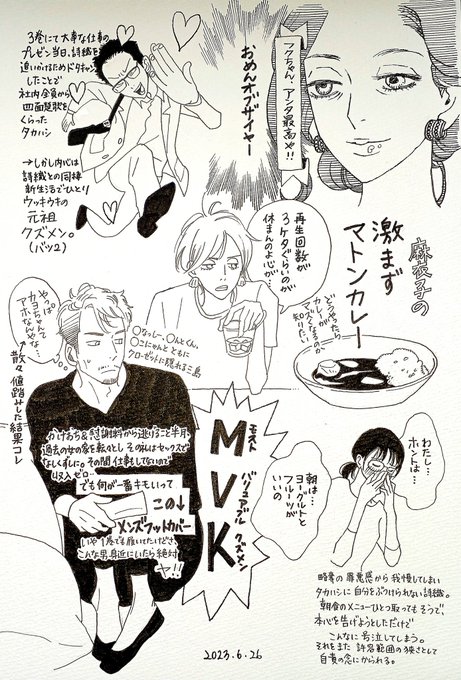 3巻にて大事な仕事の
プレゼン当日、詩織を
追いかけるためドタキャン
したことで
社内全員から
四面楚歌を
くらった
タカハシ
→しかし内心は
詩織との同棲
新生活でひとり
ウッキウキの
元祖
クズメン。
(バツ2)
フクちゃん、アンタ最高や!!
おめんオブザイヤー
再生回数が
3ケタぐらいが
休まんのよ心が…
麻衣子の
激まず
マトンカレー
どうやったら
カレーが
マズくなるのか
知りたい
〇なっしー、〇んとくん、
〇こにゃんと ともに
クローゼットに隠れる三島
やっぱ
カヨちゃんて
アホなんやな…
散々値踏みした結果コレ
モスト
バリュアブル
クズメン
MVK
かけおち&慰謝料から逃げること半月、
過去の女の家を転々とし その私はセックスで
なしくずしに。その間仕事もしてないので
収入ゼロ…
でも何が一番キモいって
この→
メンズフットカバー
いや1巻でも履いてたけどさ、
こんな男身近にいたら絶対
ヤ!!
わたし…
ホントは…
朝は…
ヨーグルトと
フルーツが
いいの
略奪の罪悪感から我慢してしまい
タカハシに自分をぶつけられない詩織。
朝食のメニューひとつ取ってもそうで、
本心を告げようとしただけで
こんなに号泣してしまう。
それをまた許容範囲の狭さとして
自責の念にかられる。
2023.6.26